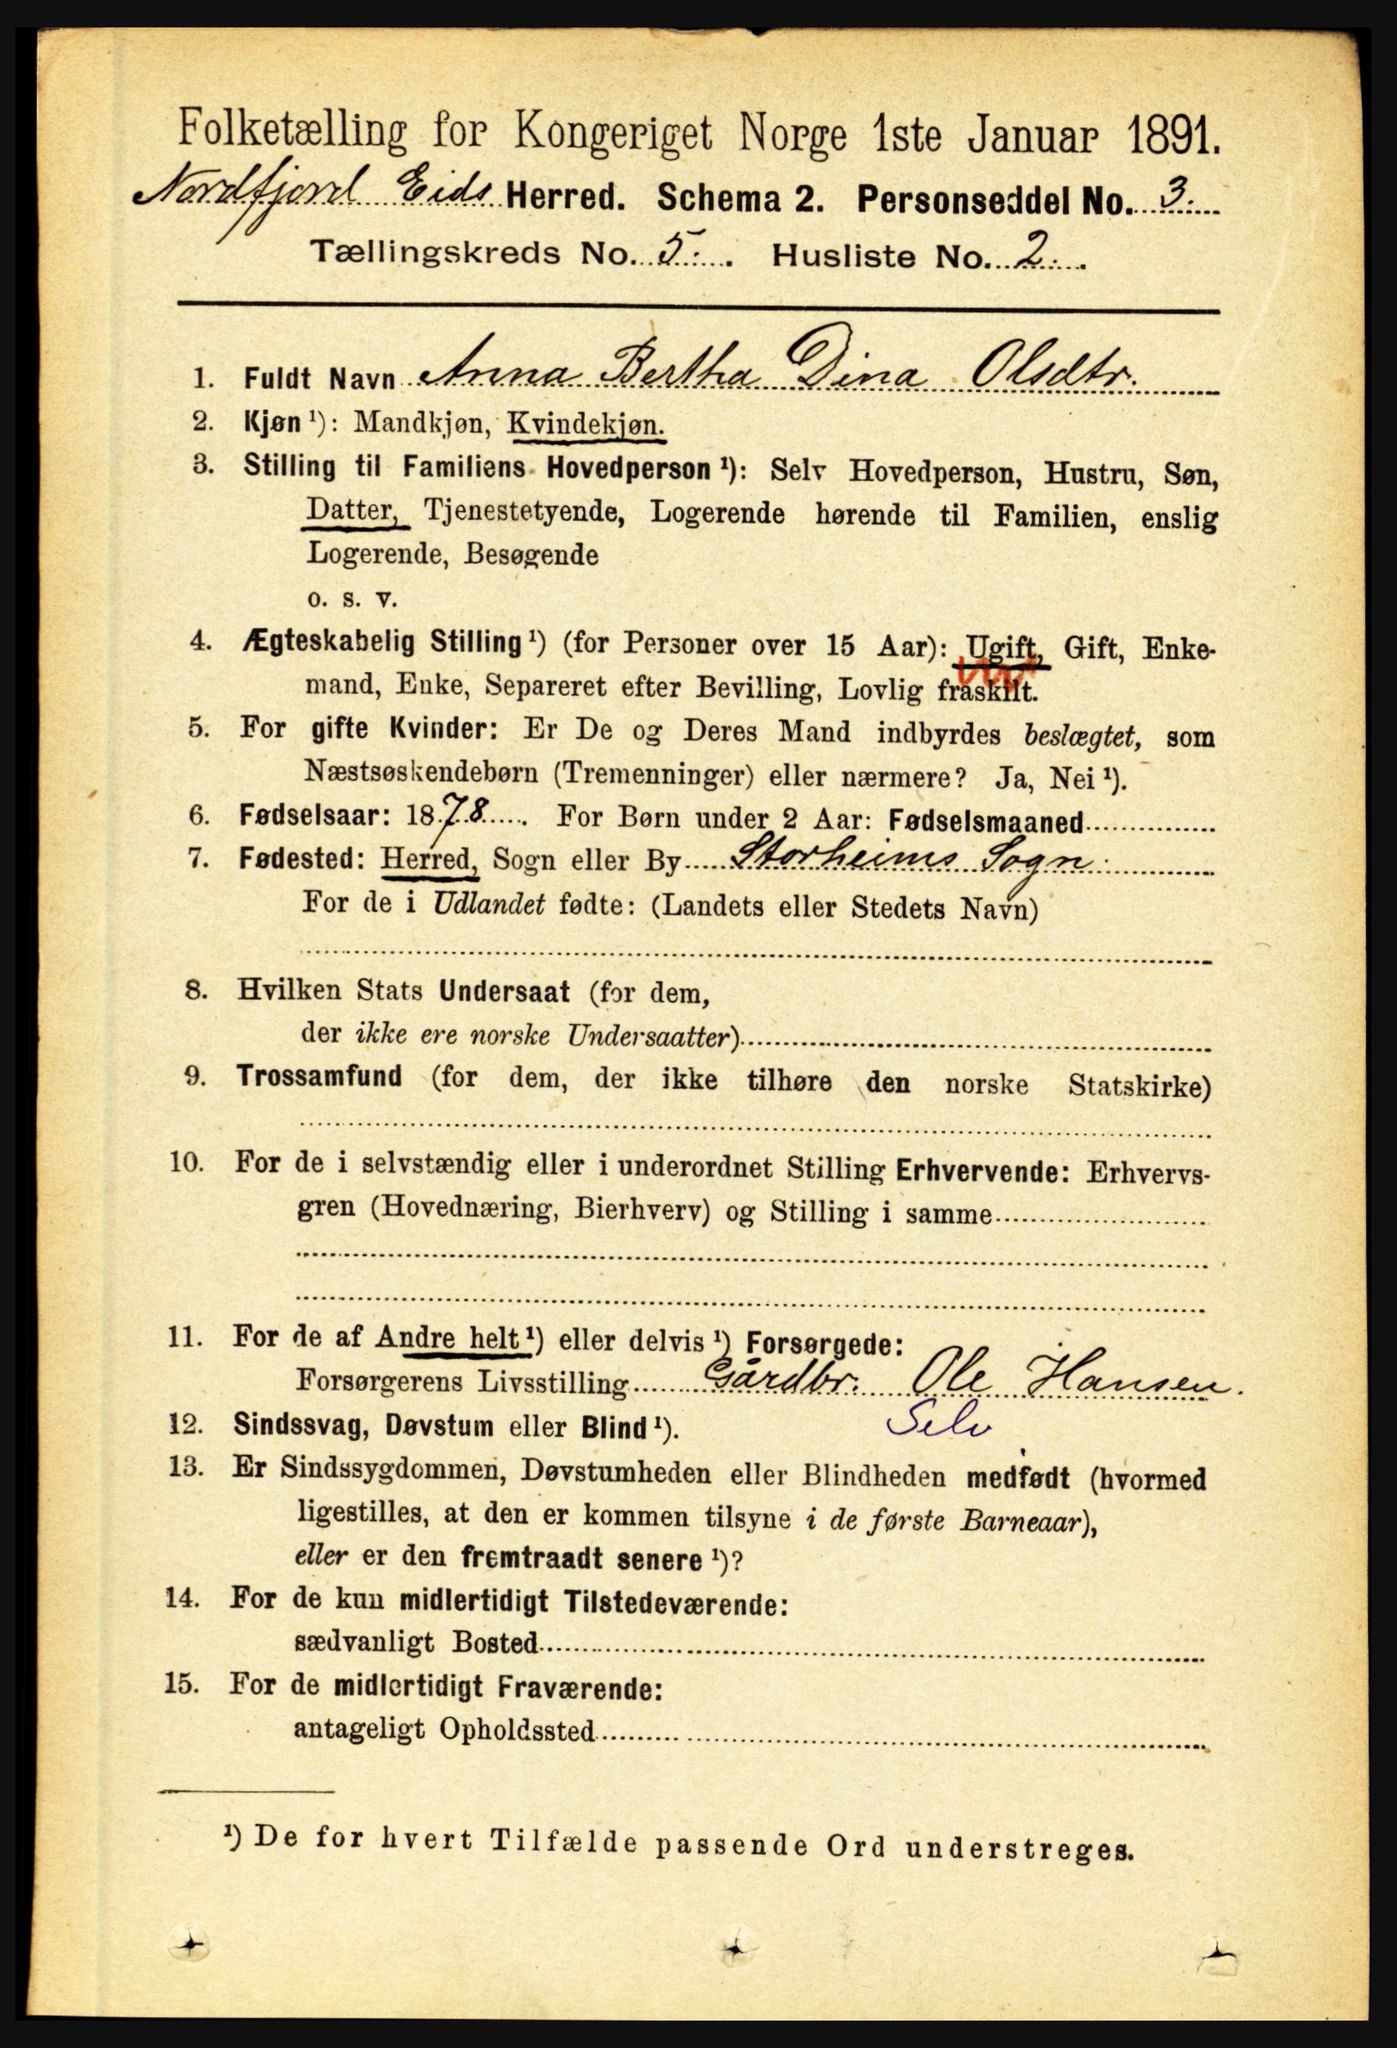 Folketælling for Kongeriget Norge 1ste Januar 1891.
Nordfjord Eids Herred. Schema 2. Personseddel No. 3.
Tællingskreds No. 5. Husliste No. 2.
1. Fuldt Navn Anna Bertha Dina Olsdtr.
2. Kjøn ¹): Mandkjøn, Kvindekjøn.
3. Stilling til Familiens Hovedperson ¹): Selv Hovedperson, Hustru, Søn,
Datter, Tjenestetyende, Logerende hørende til Familien, enslig
Logerende, Besøgende
o. s. v.
4. Ægteskabelig Stilling ¹) (for Personer over 15 Aar): Ugift, Gift, Enke-
mand, Enke, Separeret efter Bevilling, Lovlig fraskilt.
5. For gifte Kvinder: Er De og Deres Mand indbyrdes beslægtet, som
Næstsøskendebørn (Tremenninger) eller nærmere? Ja, Nei ¹).
6. Fødselsaar: 1878. For Børn under 2 Aar: Fødselsmaaned
7. Fødested: Herred, Sogn eller By Storheims Sogn.
For de i Udlandet fødte: (Landets eller Stedets Navn)
8. Hvilken Stats Undersaat (for dem,
der ikke ere norske Undersaatter)
9. Trossamfund (for dem, der ikke tilhøre den norske Statskirke)
10. For de i selvstændig eller i underordnet Stilling Erhvervende: Erhvervs-
gren (Hovednæring, Bierhverv) og Stilling i samme
11. For de af Andre helt ¹) eller delvis ¹) Forsørgede:
Forsørgerens Livsstilling Gårdbr. Ole Hansen.
12. Sindssvag, Døvstum eller Blind ¹). Selv
13. Er Sindssygdommen, Døvstumheden eller Blindheden medfødt (hvormed
ligestilles, at den er kommen tilsyne i de første Barneaar),
eller er den fremtraadt senere ¹)?
14. For de kun midlertidigt Tilstedeværende:
sædvanligt Bosted
15. For de midlertidigt Fraværende:
antageligt Opholdssted
¹) De for hvert Tilfælde passende Ord understreges.